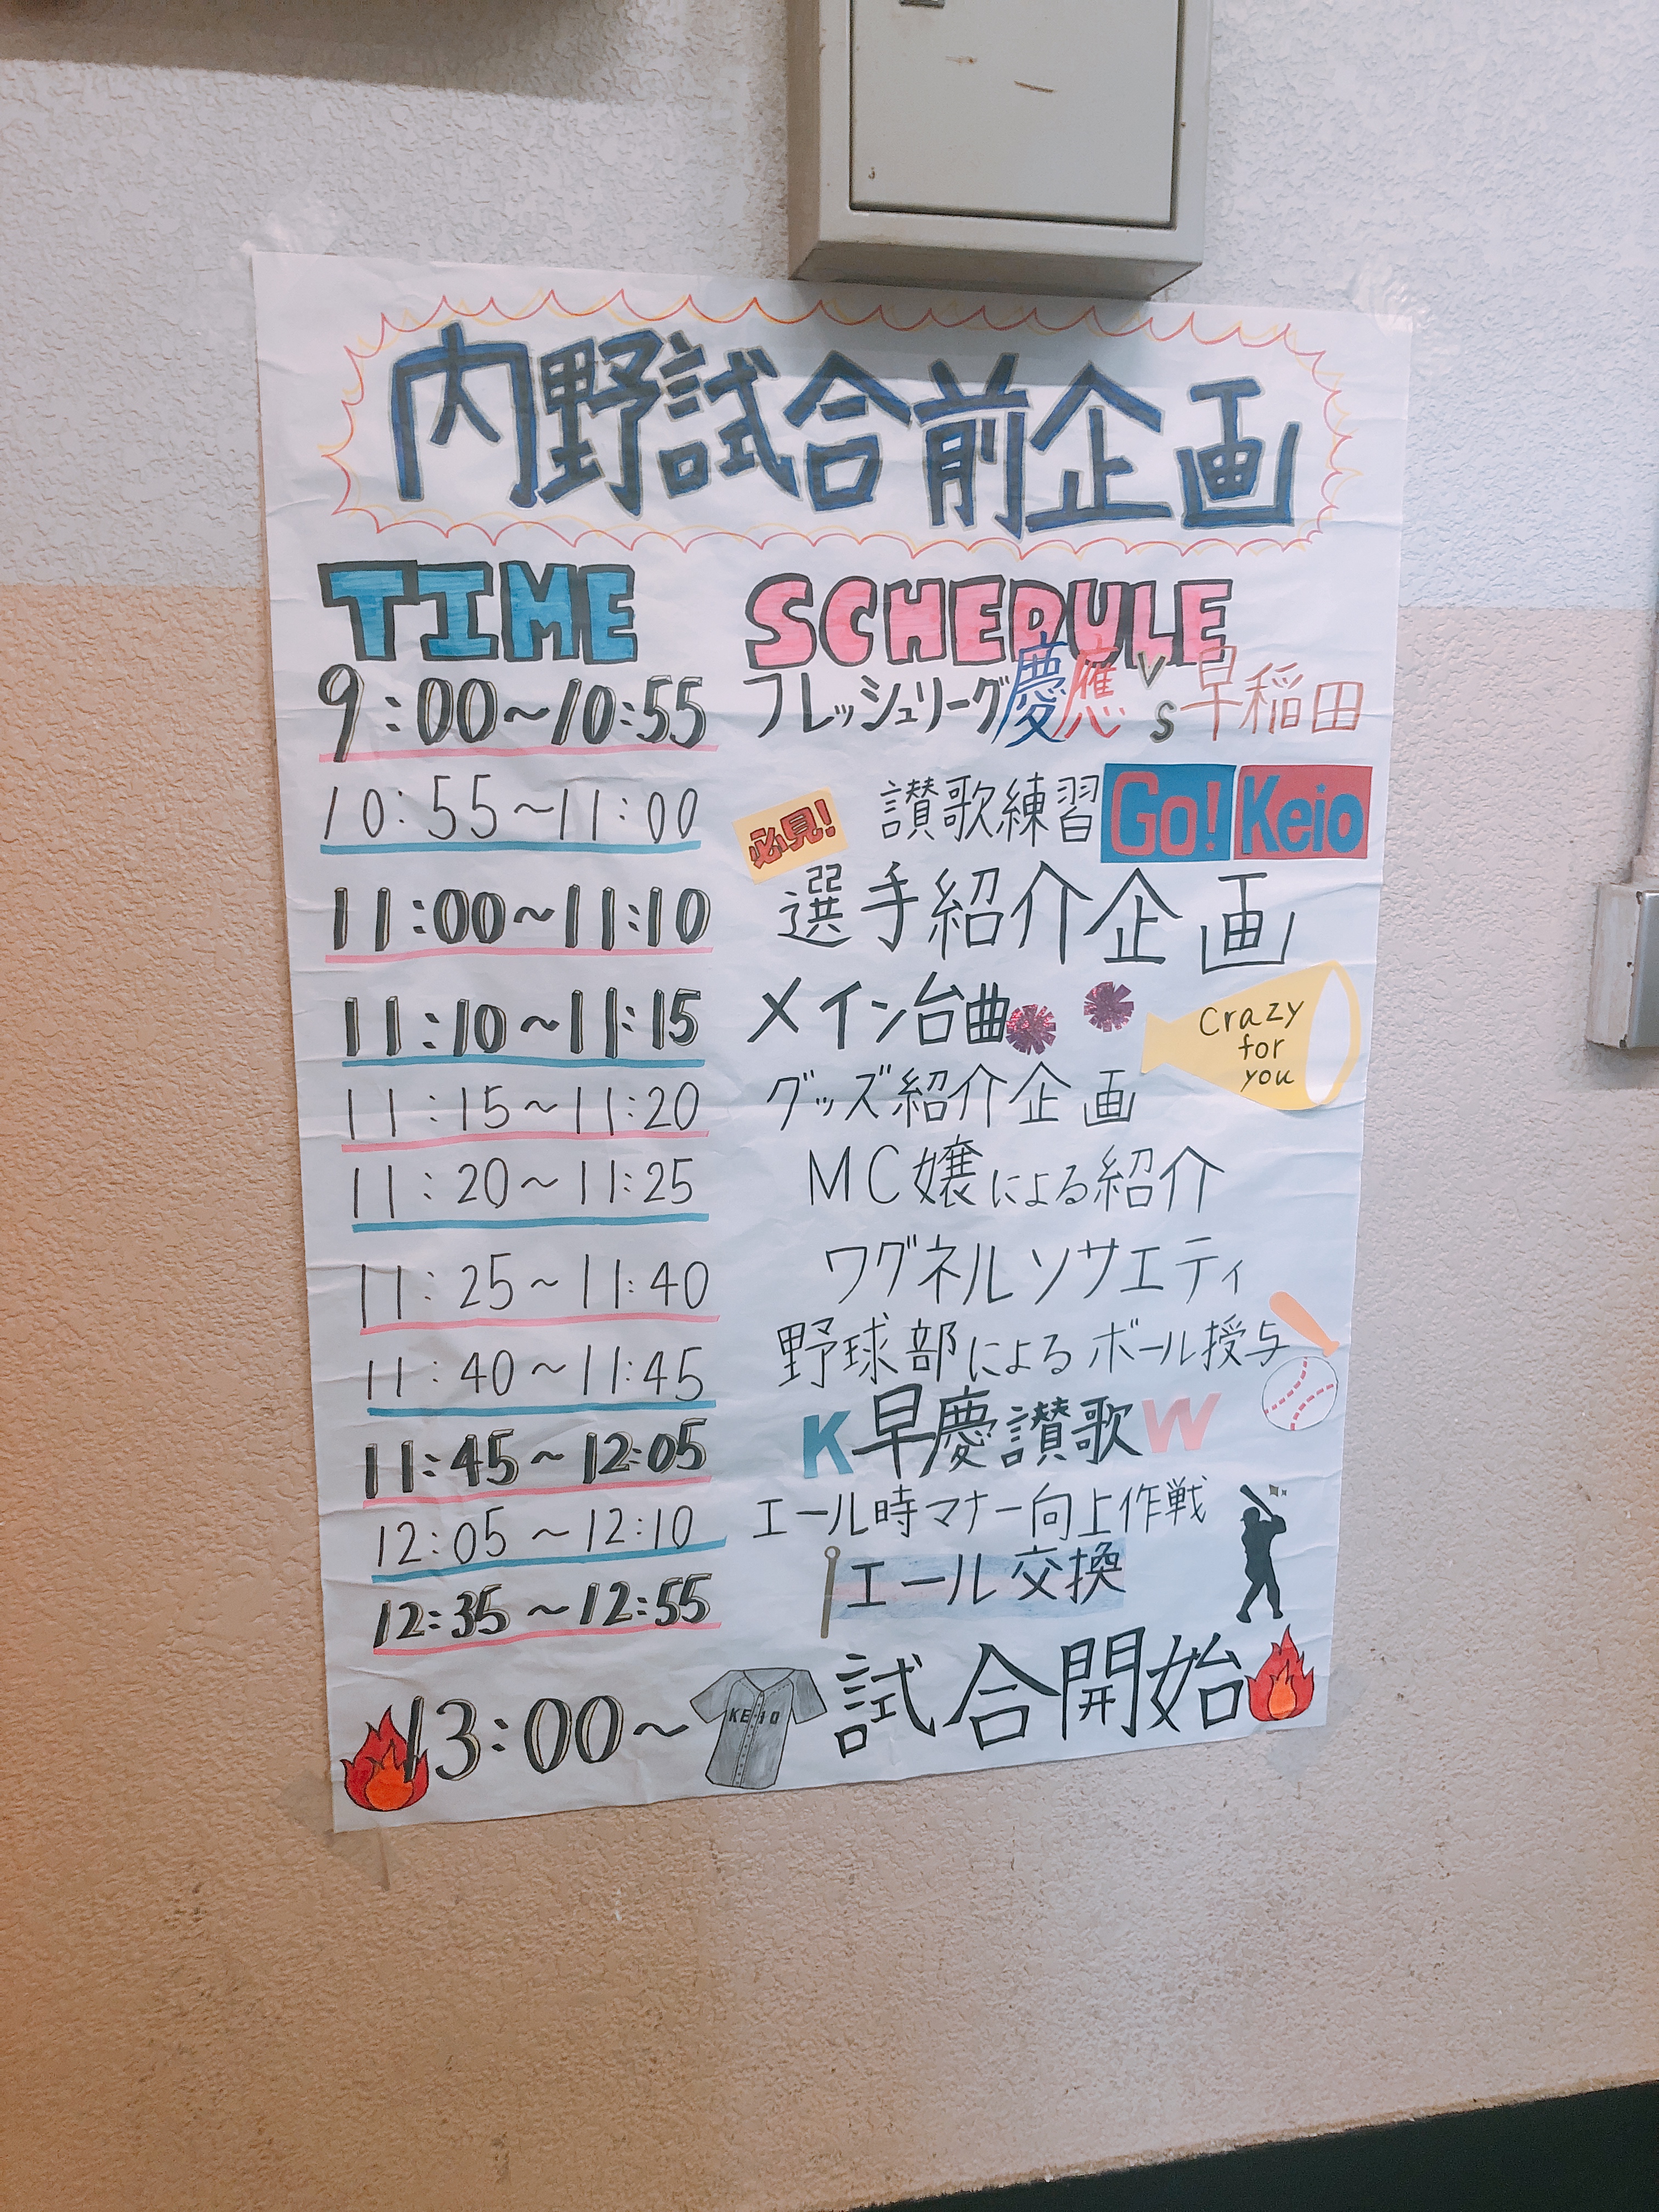 内野試合前企画
TIME SCHEDULE
9:00~10:55 フレッシュリーグ慶應 vs 早稲田
10:55~11:00 讃歌練習 Go! Keio
必見!
11:00~11:10 選手紹介企画
11:10~11:15 メイン台曲
Crazy
for
you
11:15~11:20 グッズ紹介企画
11:20~11:25 MC嬢による紹介
11:25~11:40 ワグネルソサエティ
11:40~11:45 野球部によるボール授与
11:45~12:05 K早慶讃歌W
12:05~12:10 エール時マナー向上作戦
12:35~12:55 エール交換
13:00~ KEIO 試合開始